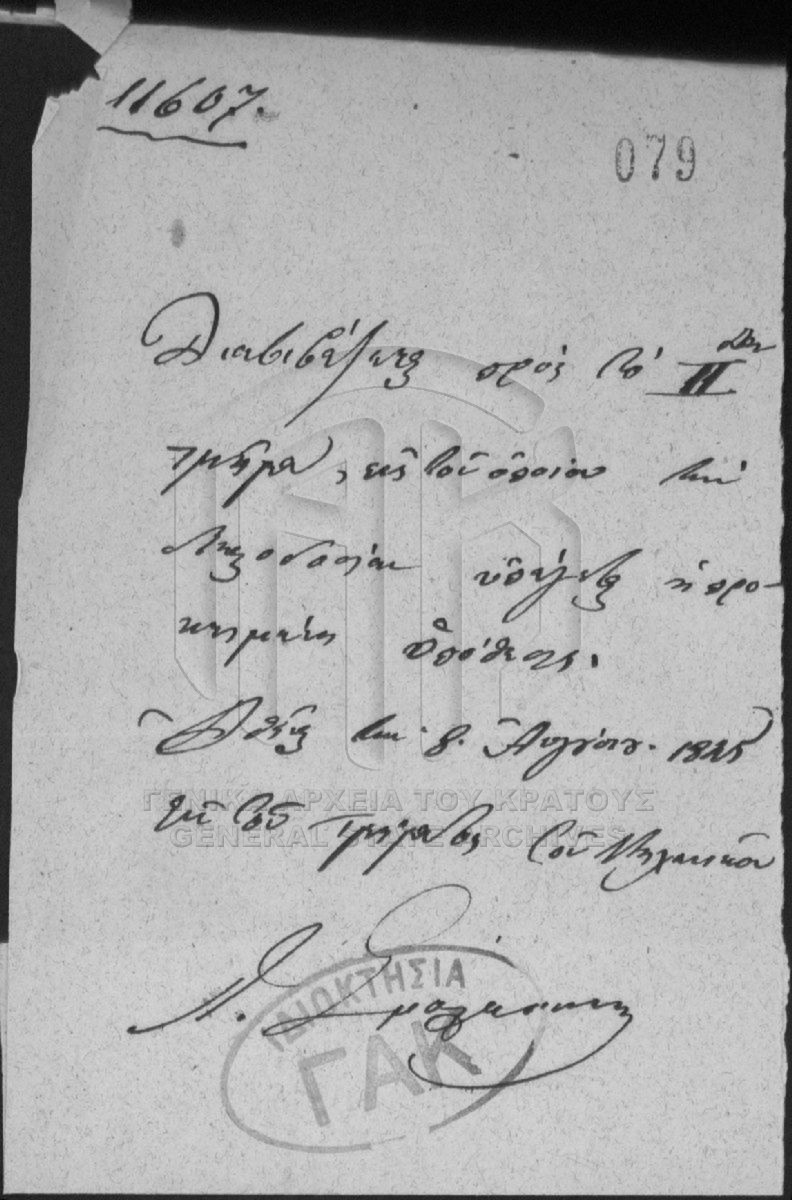 11607.
079
Διαβιβάζεται πρὸς τὸ II
τμῆμα, εἰς τοῦ ὁποίου τὴν
δικαιοδοσίαν ὑπάγεται ἡ προ-
κειμένη ὑπόθεσις.
Ἀθῆναι τὴν 8. Αὐγούστου. 1845
Ἐκ τοῦ Τμήματος τοῦ Μηχανικοῦ
ΓΕΝΙΚΑ ΑΡΧΕΙΑ ΤΟΥ ΚΡΑΤΟΥΣ
GENERAL STATE ARCHIVES
ΙΔΙΟΚΤΗΣΙΑ
ΓΑΚ